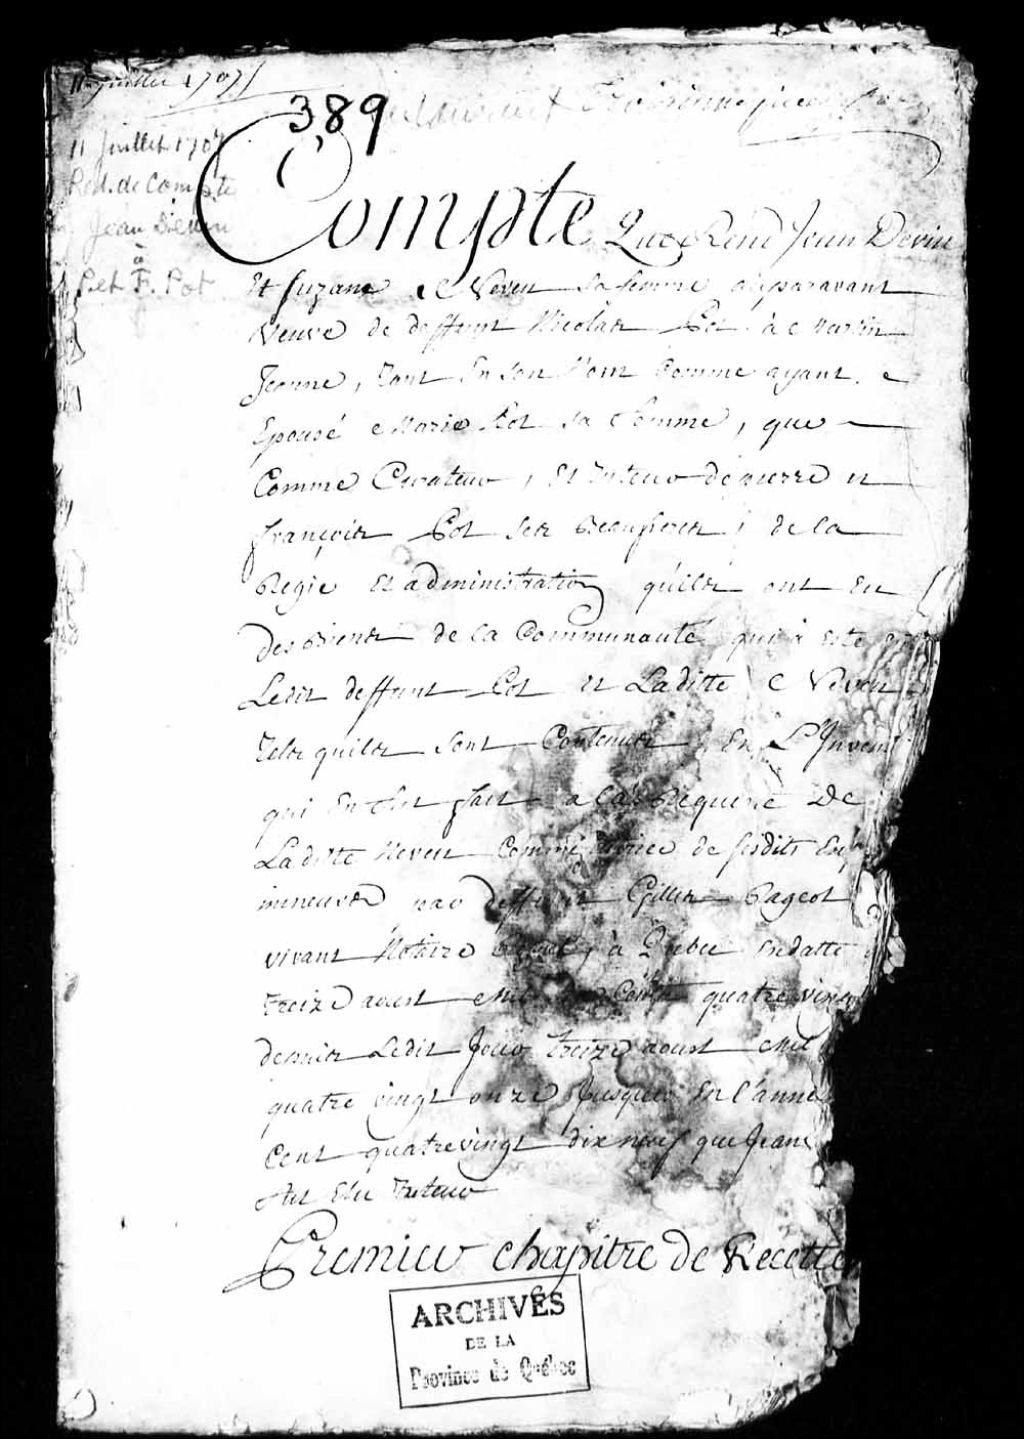 11 Juillet 1707
389
11 Juillet 1707
Red. de Compte
Jean
à
P. et F. Pot
Compte Que Rend Jean Devin
Et Suzane Neveu sa femme auparavant
Veuve de deffunt Nicolas Pot à Martin
Jeanne, tant En son Nom Comme ayant
Epousé Marie Pot sa femme, que
Comme Curateur, Et Tuteur de pierre et
françois Pot ses Beaufreres, de la
Régie Et administration quilz ont Eu
des Biens de la Communauté qui à Esté
Ledit deffunt Pot et Laditte Neveu
Telz quilz sont Contenus En L'Invent
qui En fut fait a la Requeste De
Laditte Neveu Comme tutrice de sesdits Enf
mineurs par deffunt Gilles Rageot
vivant Notaire à Quebec Endatte
Treize aoust Mil six Cents quatre vingt
depuis Ledit Jour treize aoust Mil
quatre vingt onze Jusques En l'année
Cent quatrevingt dix neuf que Jeanne
fut Elu Tuteur
Premier chapitre de Recette
ARCHIVES
DE LA
Province de Québec